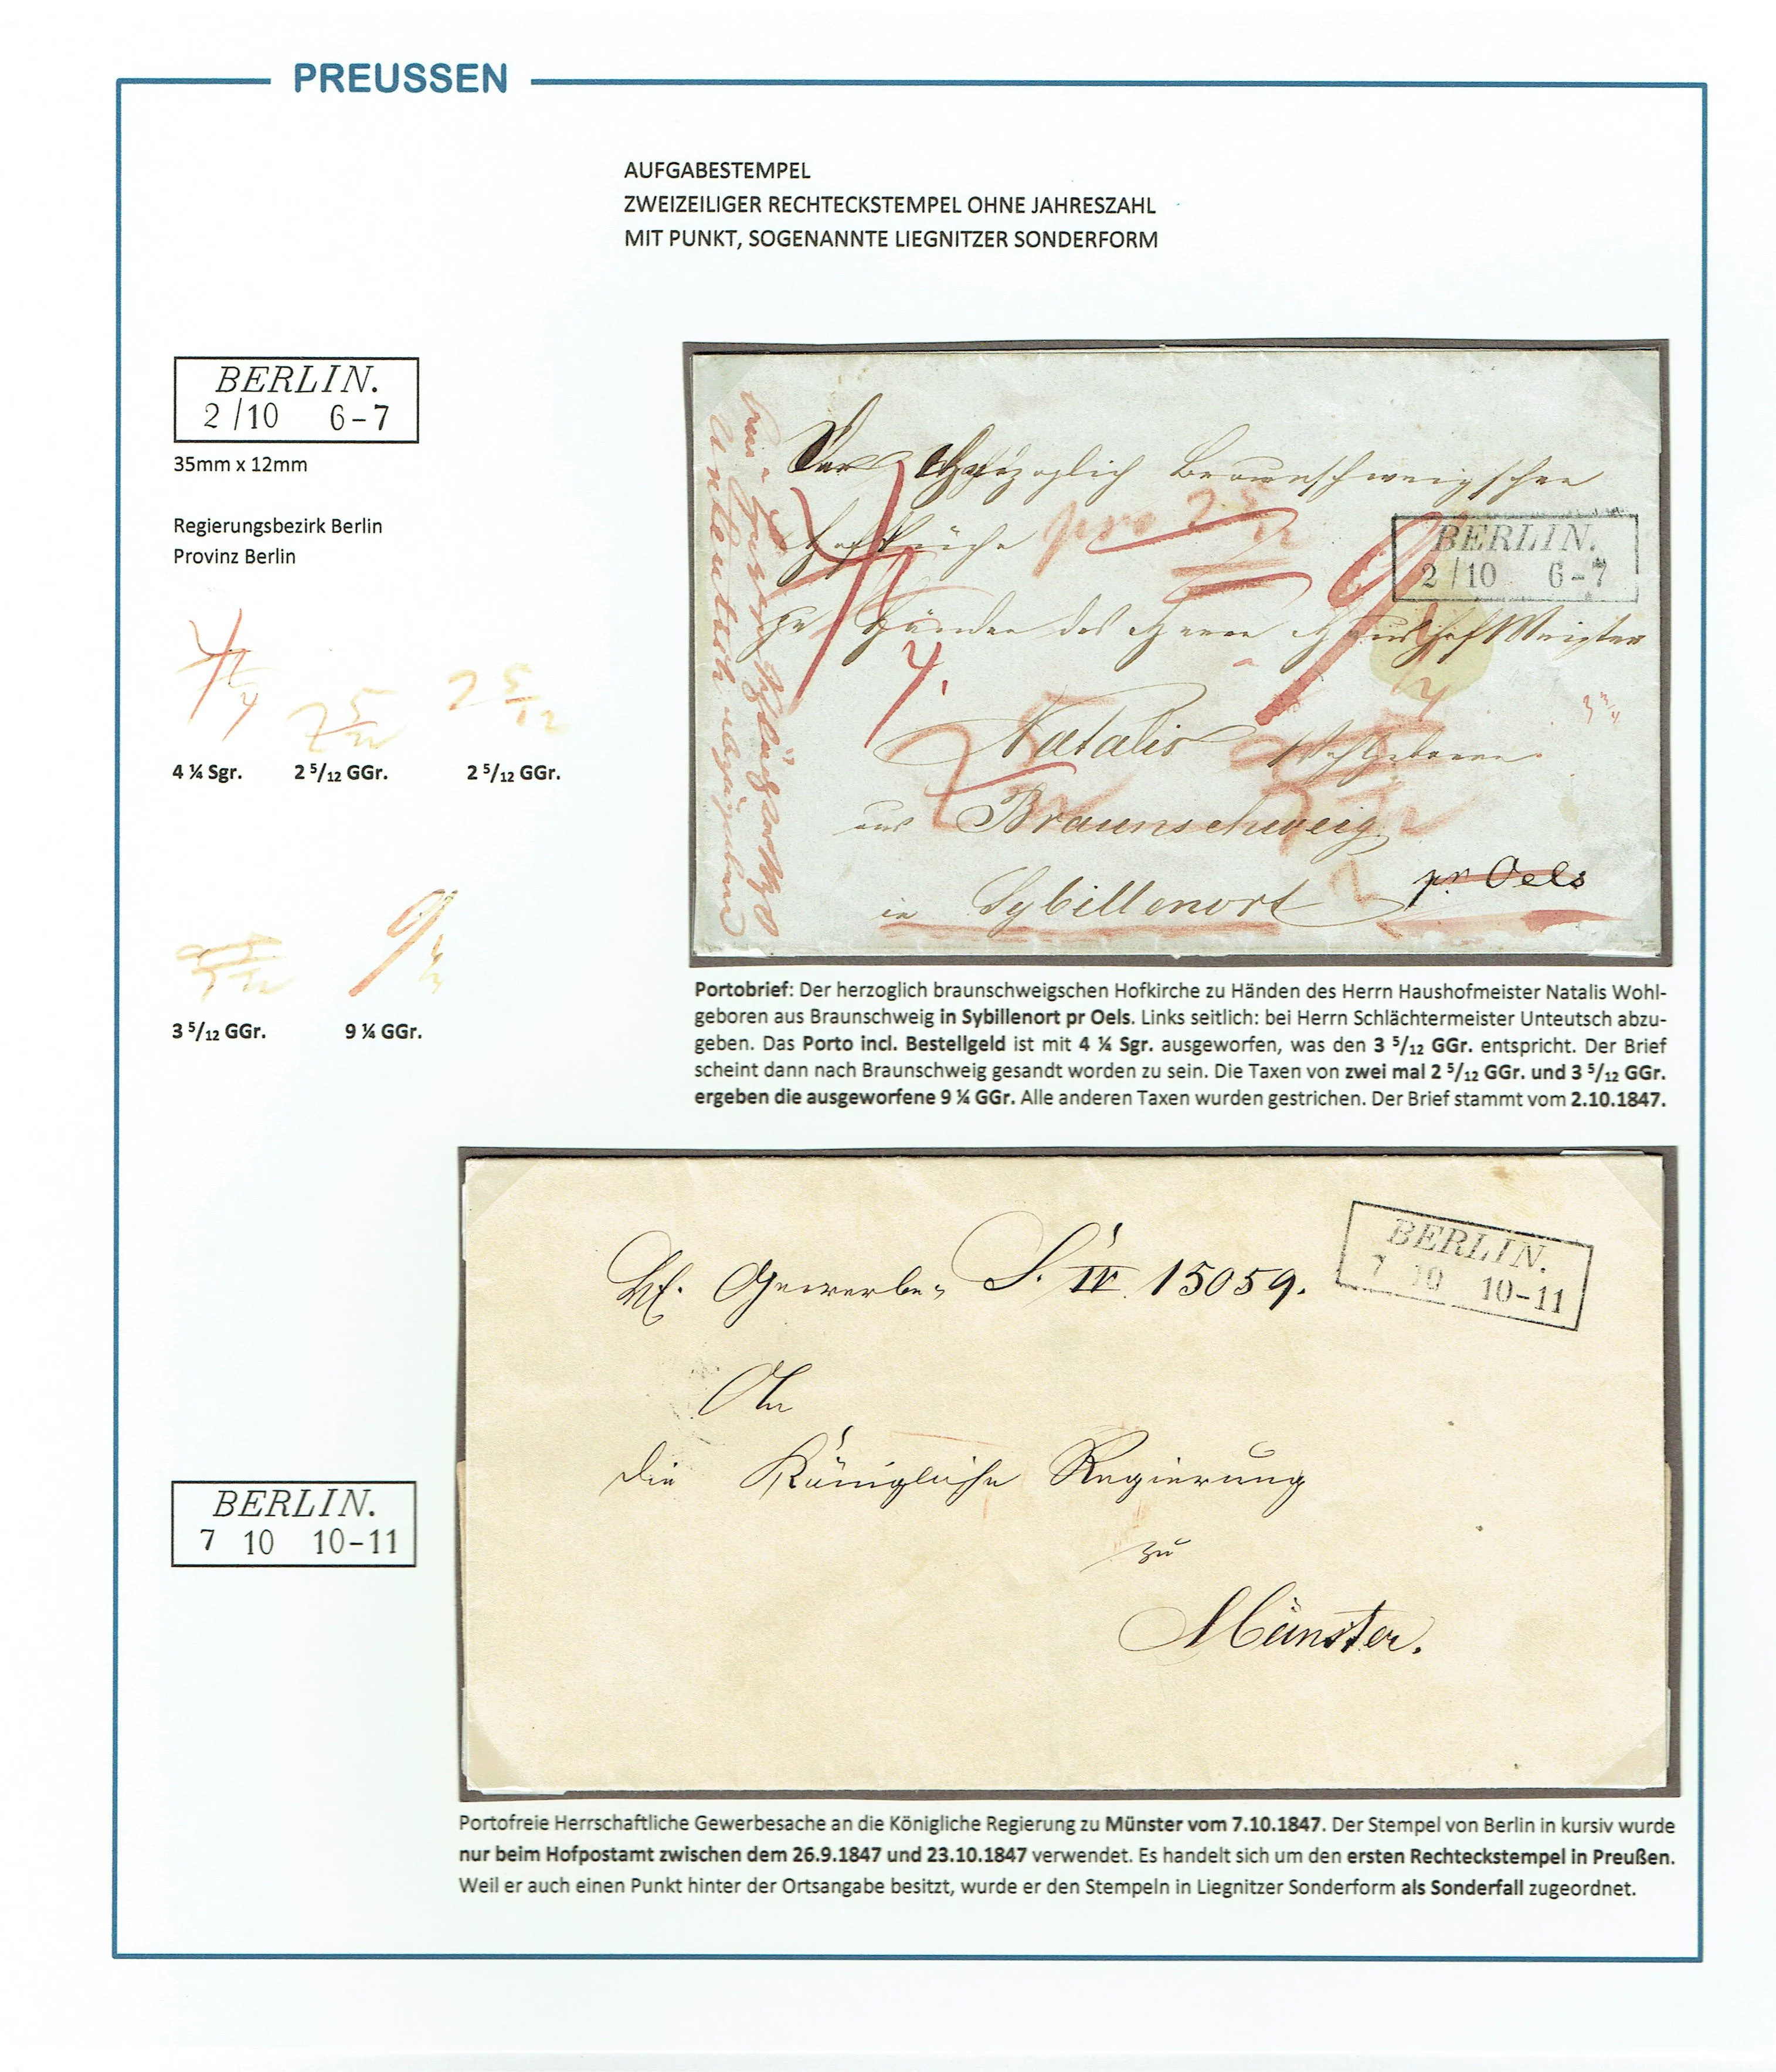 PREUSSEN
AUFGABESTEMPEL
ZWEIZEILIGER RECHTECKSTEMPEL OHNE JAHRESZAHL
MIT PUNKT, SOGENANNTE LIEGNITZER SONDERFORM
BERLIN.
2/10 6-7
35mm x 12mm
Regierungsbezirk Berlin
Provinz Berlin
4 ¼ Sgr. 2 5/12 GGr. 2 5/12 GGr.
3 5/12 GGr. 9 ¼ GGr.
Der Herzoglich Braunschweigschen
pro 2 5/12
BERLIN.
2/10 6-7
zu Händen des Herrn Haushofmeister
Natalis Wohlgeboren
aus Braunschweig
in Sybillenort pr Oels
Portobrief: Der herzoglich braunschweigschen Hofkirche zu Händen des Herrn Haushofmeister Natalis Wohl-
geboren aus Braunschweig in Sybillenort pr Oels. Links seitlich: bei Herrn Schlächtermeister Unteutsch abzu-
geben. Das Porto incl. Bestellgeld ist mit 4 ¼ Sgr. ausgeworfen, was den 3 5/12 GGr. entspricht. Der Brief
scheint dann nach Braunschweig gesandt worden zu sein. Die Taxen von zwei mal 2 5/12 GGr. und 3 5/12 GGr.
ergeben die ausgeworfene 9 ¼ GGr. Alle anderen Taxen wurden gestrichen. Der Brief stammt vom 2.10.1847.
BERLIN.
7 10 10-11
Gewerbe S. IV. 15059.
An
die Königliche Regierung
zu
Münster.
BERLIN.
7 10 10-11
Portofreie Herrschaftliche Gewerbesache an die Königliche Regierung zu Münster vom 7.10.1847. Der Stempel von Berlin in kursiv wurde
nur beim Hofpostamt zwischen dem 26.9.1847 und 23.10.1847 verwendet. Es handelt sich um den ersten Rechteckstempel in Preußen.
Weil er auch einen Punkt hinter der Ortsangabe besitzt, wurde er den Stempeln in Liegnitzer Sonderform als Sonderfall zugeordnet.